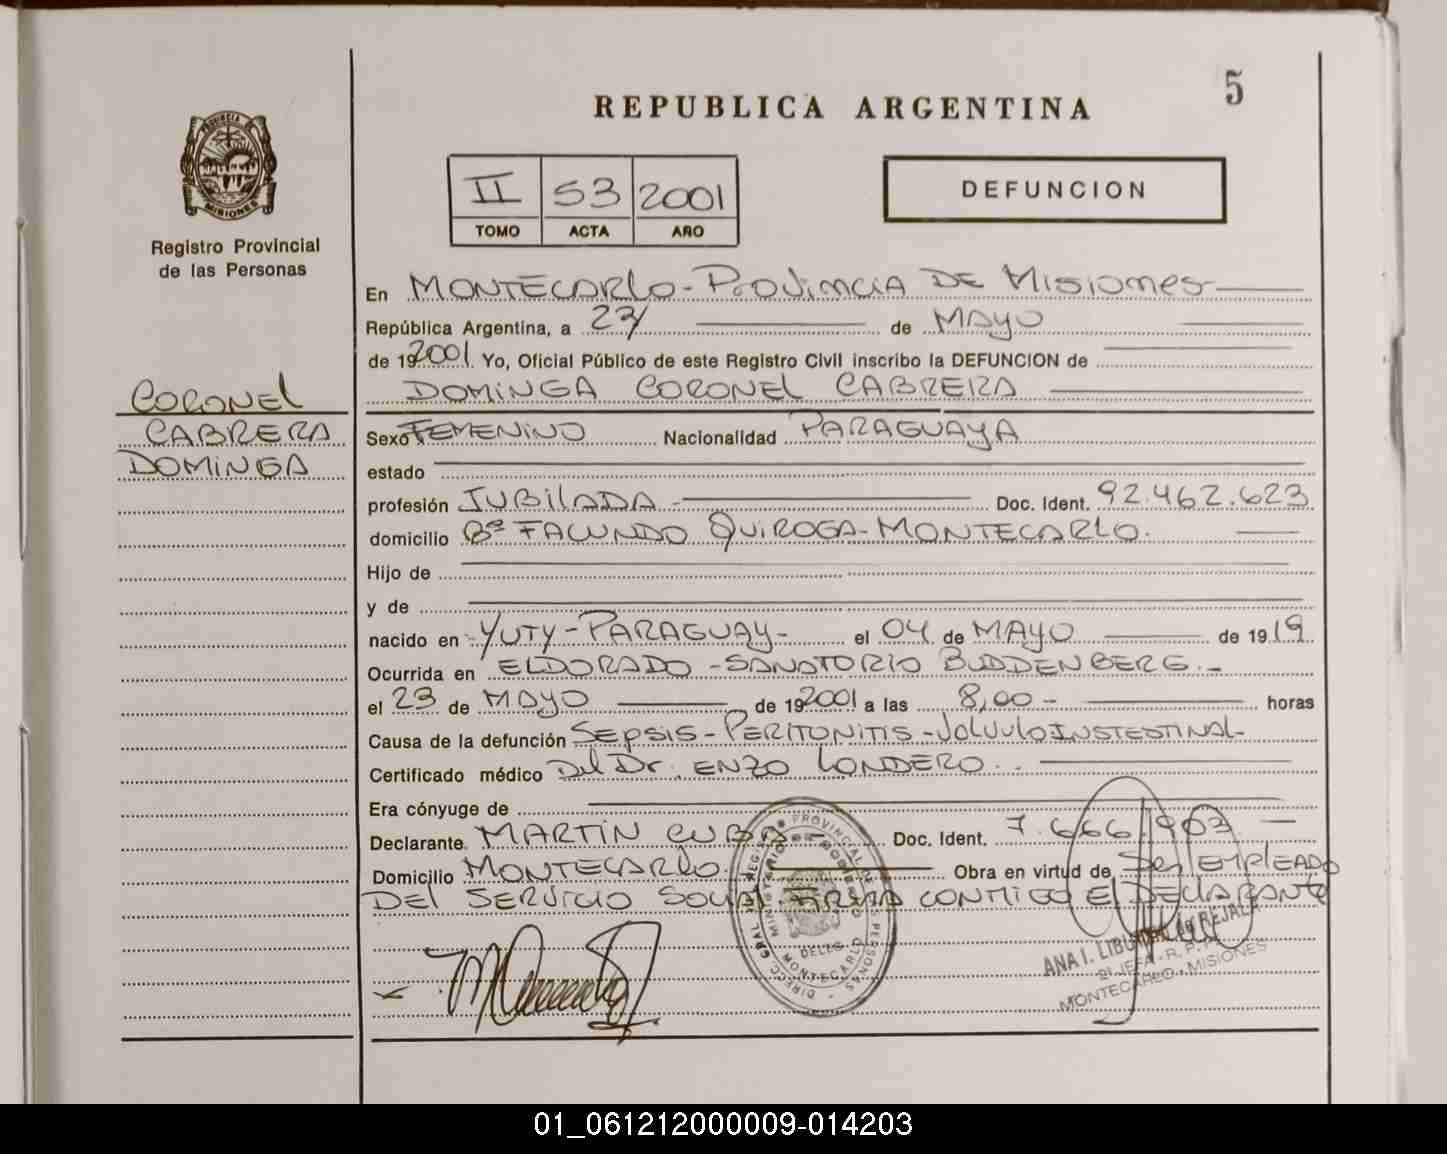 5
REPUBLICA ARGENTINA
PROVINCIA DE
MISIONES
Registro Provincial
de las Personas
II 53 2001
TOMO ACTA AÑO
DEFUNCION
En MONTECARLO - PROVINCIA DE MISIONES
República Argentina, a 23/ de MAYO
de 192001. Yo, Oficial Público de este Registro Civil inscribo la DEFUNCION de
DOMINGA CORONEL CABRERA
CORONEL
CABRERA
DOMINGA
Sexo FEMENINO Nacionalidad PARAGUAYA
estado
profesión JUBILADA - Doc. Ident. 92.462.623
domicilio Bº FACUNDO QUIROGA - MONTECARLO.
Hijo de
y de
nacido en YUTY - PARAGUAY - el 04 de MAYO de 1919
Ocurrida en ELDORADO - SANATORIO BUDDENBERG. -
el 23 de MAYO de 192001 a las 8,00 - horas
Causa de la defunción SEPSIS - PERITONITIS - VOLVULO INSTESTINAL -
Certificado médico Del Dr. ENZO LONDERO.
Era cónyuge de
Declarante MARTIN CUBA Doc. Ident. 7.666.903
Domicilio MONTECARLO. Obra en virtud de SER EMPLEADO
DEL SERVICIO SOCIAL FIRMA CONMIGO El DEClARANTE
DIRECC. GRAL. REGISTRO PROVINCIAL DE LAS PERSONAS
MINISTERIO DE GOBIERNO
DELEG.
MONTECARLO
ANA I. REJALA
MONTECARLO - MISIONES
01_061212000009-014203